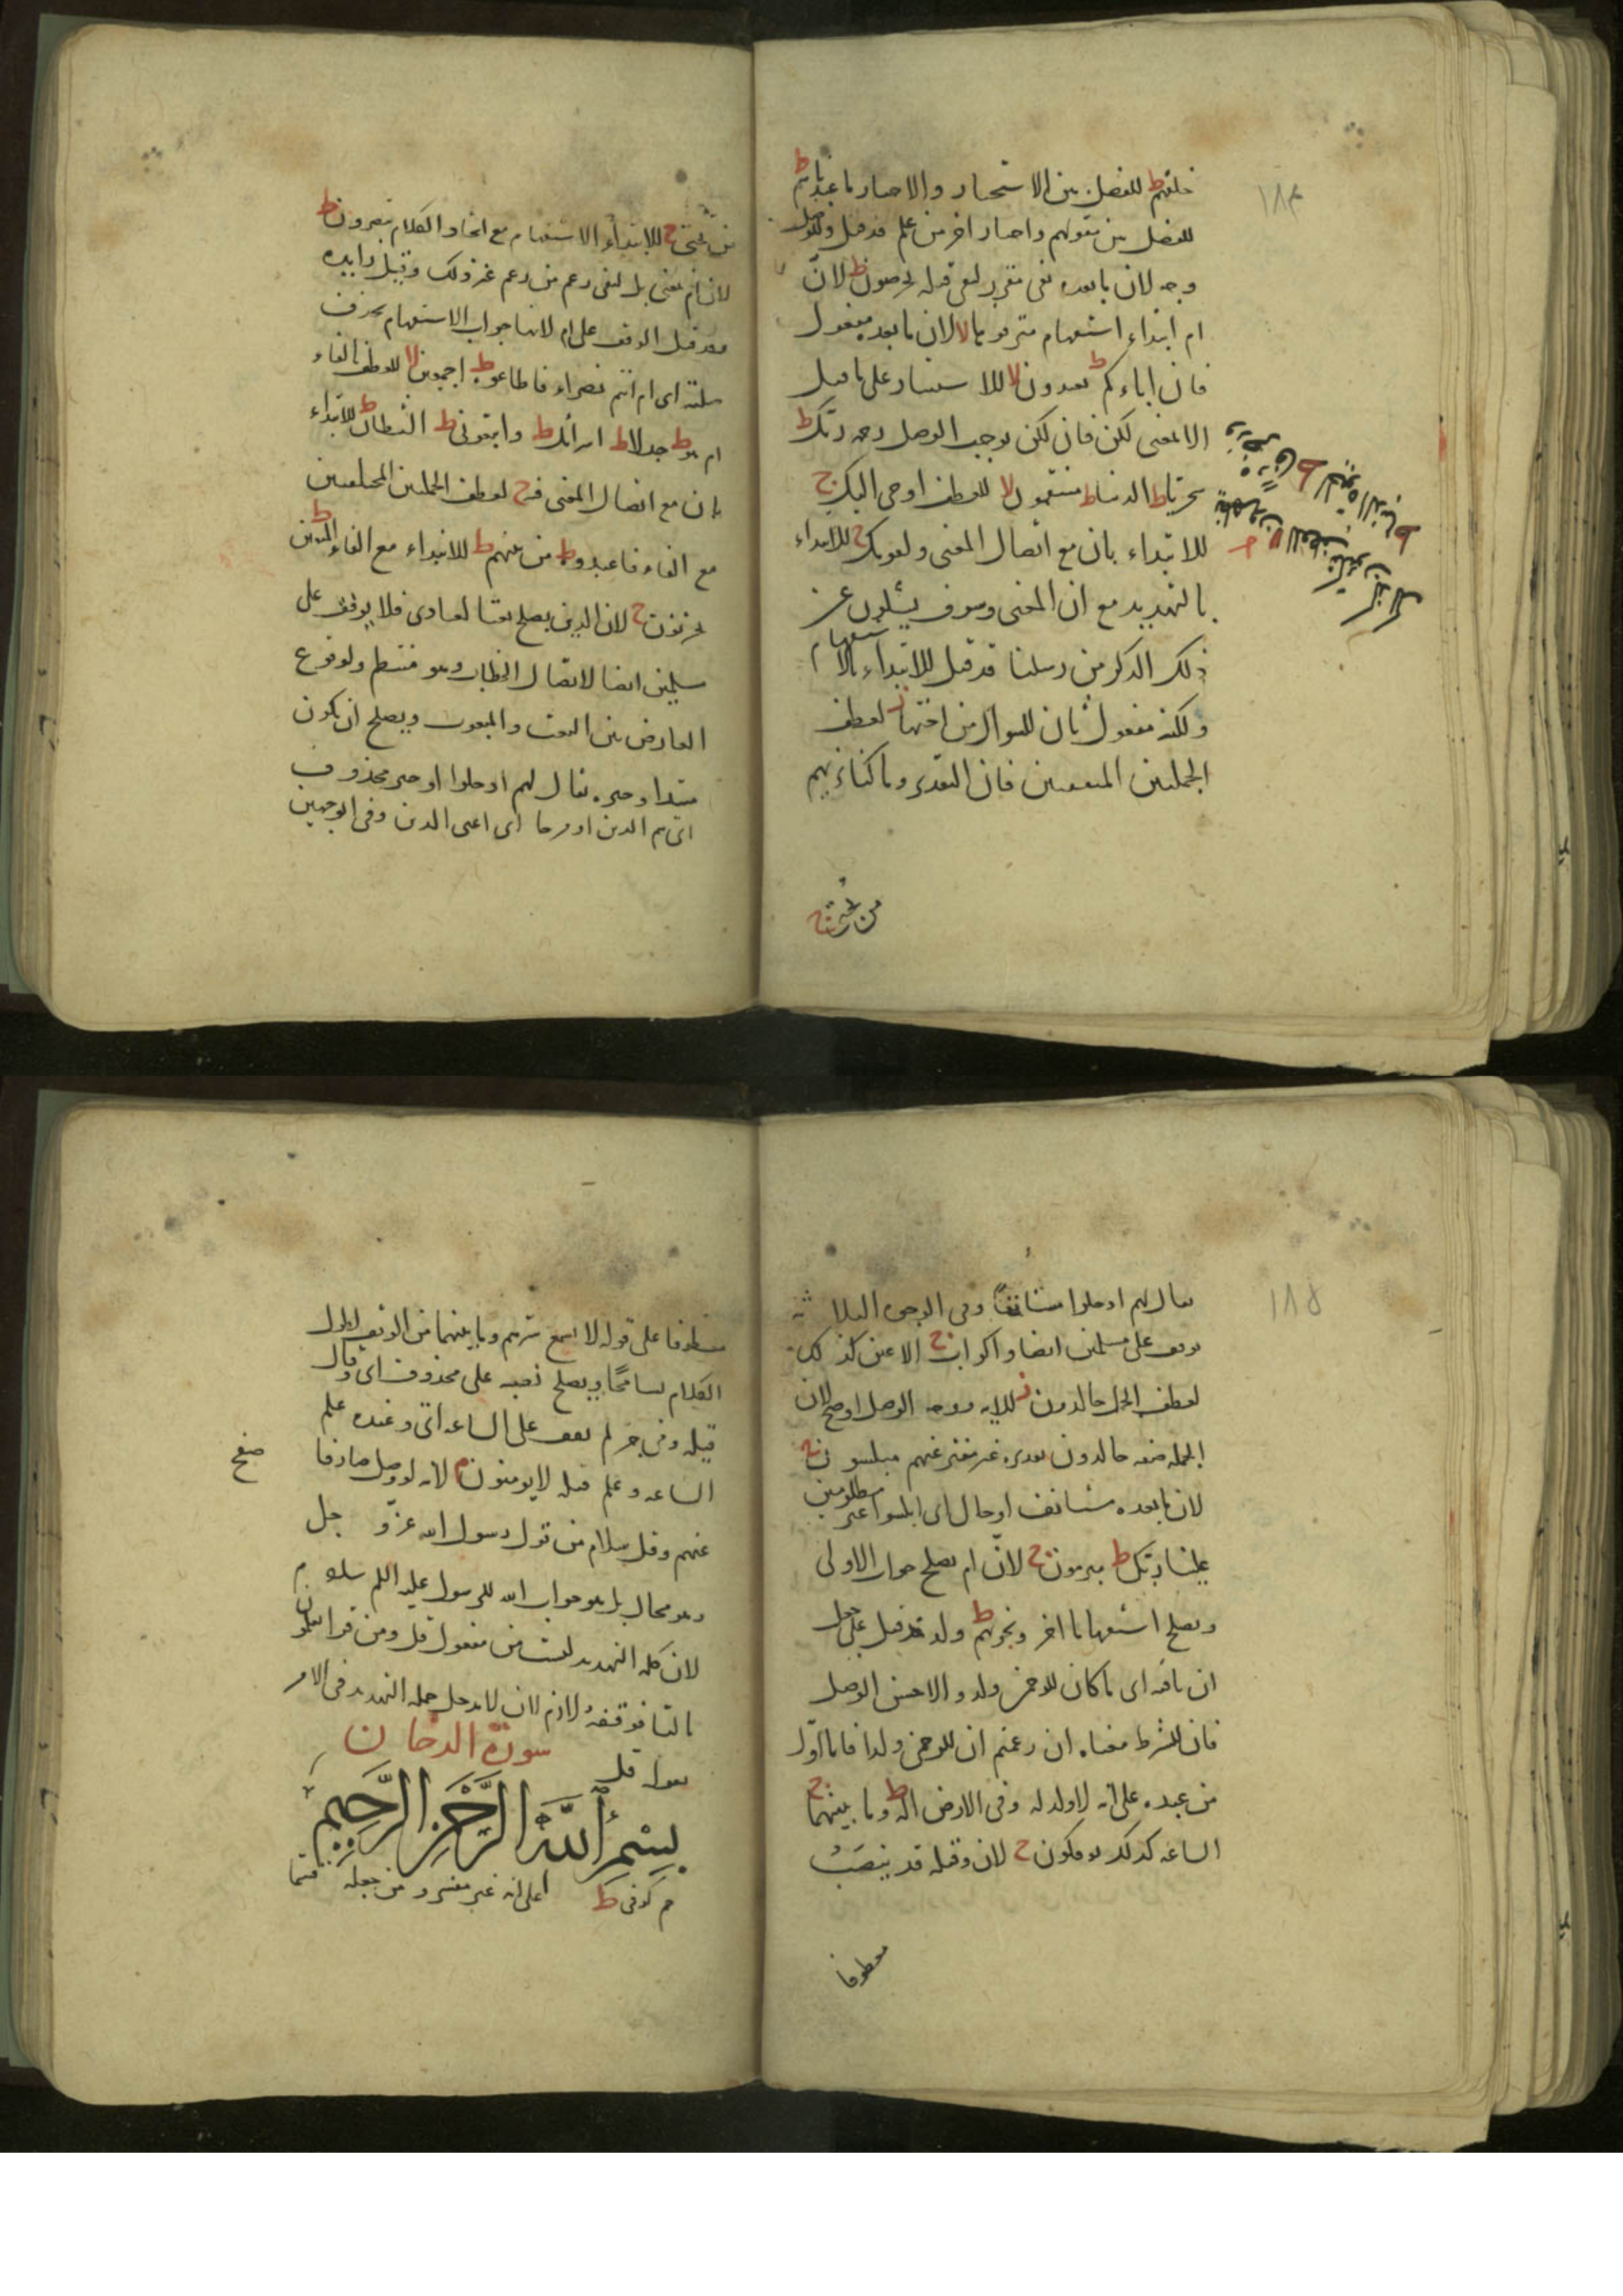 ١٨٤
خلقهم ط للفصل بين الاستخبار والاخبار ما عبدناهم ط
للفصل بين مقولهم واخبار اخر من علم قد قيل وللوصل
وجه لان ما بعده نفى مقرر لنفى قبله يخرصون ط لان
ام ابتداء استفهام مترفوها لا لان ما بعد مفعول
قال اباءكم ط تعبدون لا للاستثناء على ما قيل
الا بمعنى لكن فان لكن يوجب الوصل رحمه ربك ط
سخريا ط الدنيا ط منتقمون لا للعطف اوحى اليك ج
للابتداء بان مع اتصال المعنى ولقومك ج للابتداء
بالتهديد مع ان المعنى وسوف يسئلون عن
ذلك الذكر من رسلنا قد قيل للابتداء بالاستفهام
ولكنه مفعول ثان للسؤال من اختها ز لعطف
الجملتين المتفقتين فان التقدير وما كنا نريهم
من تحتى ج
من تحتى ج للابتداء الاستفهام مع اتحاد الكلام تبصرون ط
لان ام بمعنى بل لنفى زعم من زعم غير ذلك وقيل زايده
وقد قيل الوقف على ام لانها جواب الاستفهام بحذف
صلته اى ام انتم بصراء فاطاعوه ط اجمعين لا للعطف بالفاء
ام هو ط جدلا ط اسرائل ط واتبعونى ط الشيطان ط للابتداء
بان مع اتصال المعنى فيه ج لعطف الجملتين المختلفتين
مع الفاء فاعبدوه ط من بينهم ط للابتداء مع الفاء المتقين ط
تحزنون ج لان الذين يصلح نعتا لعبادى فلا يوقف على
مسلمين ايضا لاتصال الخطاب وهو منتظم ولوقوع
العارض بين النعت والمنعوت ويصلح ان يكون
مبتدا وخبره يقال لهم ادخلوا او خبر محذوف
اى هم الذين او مدحا اى اعنى الذين وفى الوجهين
١٨٥
يقال لهم ادخلوا مستانفا وفى الوجوه الثلاثه
يوقف على مسلمين ايضا واكواب ج الاعين كذلك
لعطف الجمل خالدون ز للايه ووجه الوصل اوضح لان
الجمله صفه خالدون تقديره غير مفتر عنهم مبلسون ج
لان ما بعده مستانف او حال اى ابلسوا غير مظلومين
علينا ربك ط مبرمون ج لان ام يصلح جواب الاولى
ويصلح استفهاما اخر ونجويهم ط ولد قد قيل على جعل
ان نافيه اى ما كان للرحمن ولد والاحسن الوصل
فان للشرط معناه ان زعمتم ان للرحمن ولدا فانا اول
من عبده على انه لا ولد له وفى الارض اله ط وما بينهما ج
الساعه كذلك يوفكون ج لان وقيله قد ينصب
معطوفا
معطوفا على قوله لا نسمع سرهم وما بينهما من الوقف لطول
الكلام تسامحا ويصلح نصبه على محذوف اى وقال
قيله ومن جر لم يقف على الساعه اى وعنده علم
الساعه وعلم قيله لا يومنون م لانه لو وصل صار فا
صفح
عنهم وقل سلام من قول رسول الله عز وجل
وهو محال بل هو جواب الله للرسول عليه السلام سلام
لان كلمه التهديد ليست من مفعول قل ومن قرا تعلمون
بالتا فوقفه لازم لان لا يدخل جمله التهديد فى الامر
سورة الدخان
بقوله قل
بسم الله الرحمن الرحيم
حم كوفى ط على انه غير مفسر ومن جعله قسما